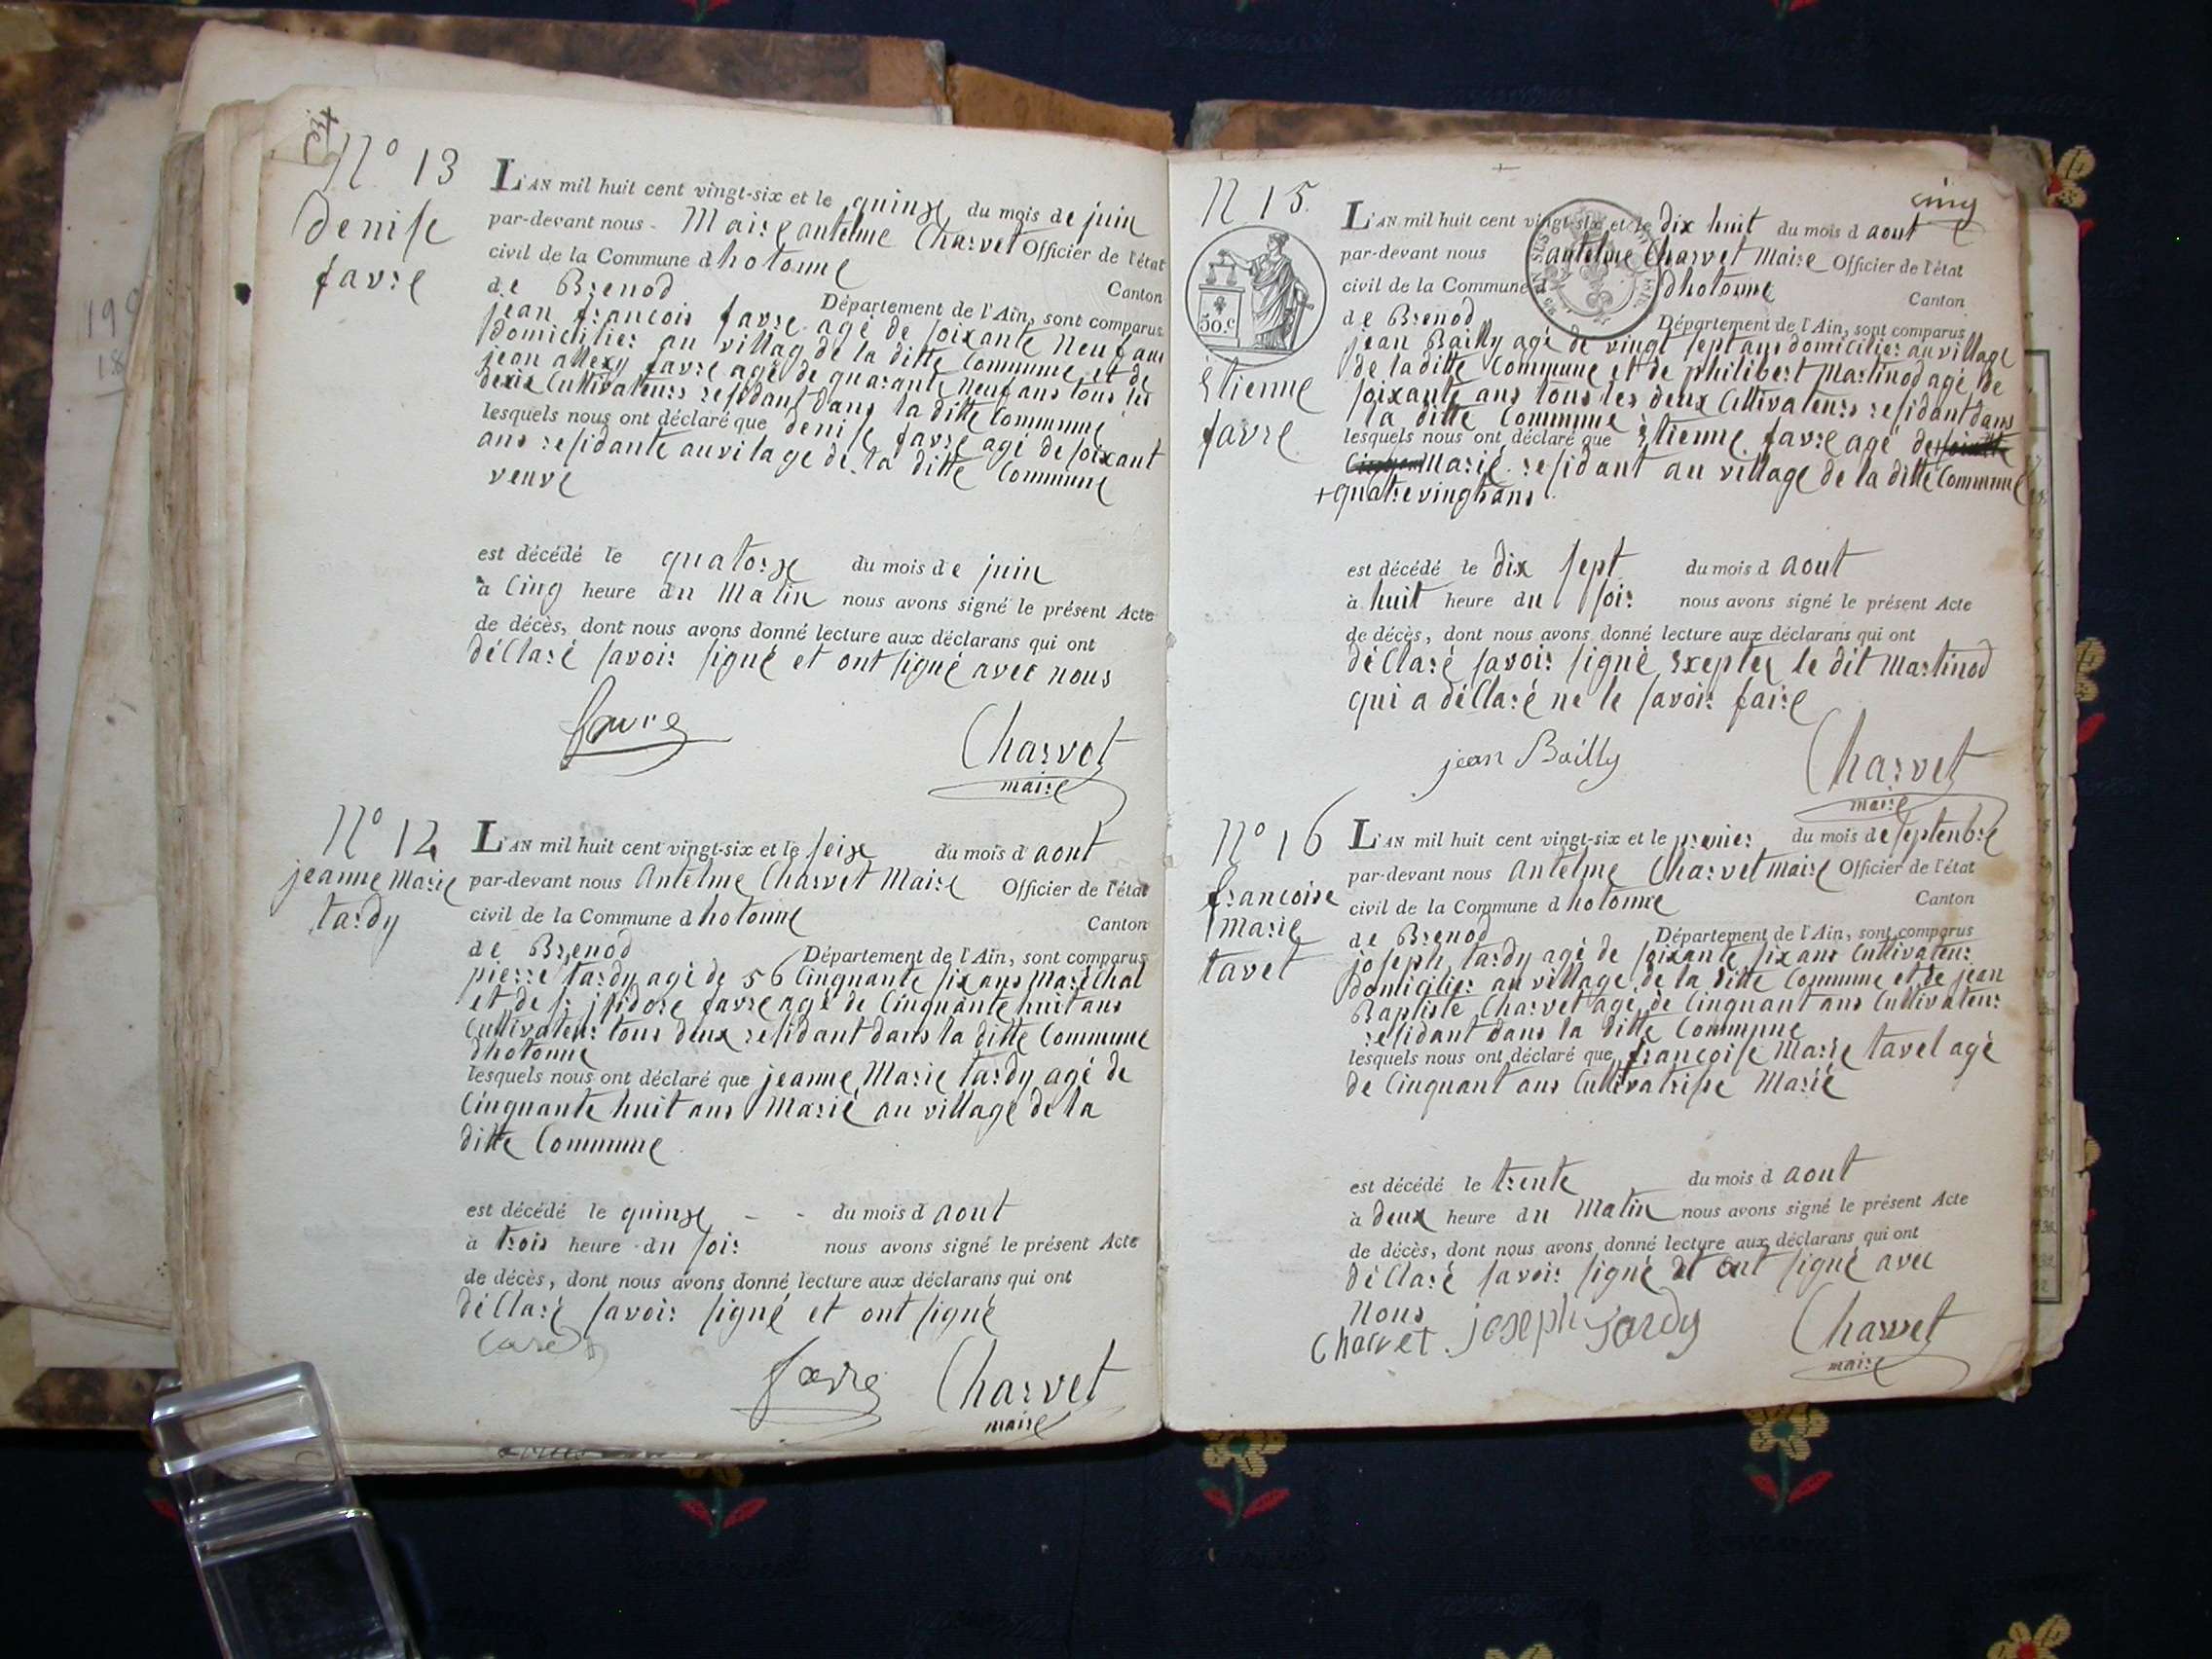 N° 13
denise
favre
L'AN mil huit cent vingt-six et le quinze du mois de juin
par-devant nous - Maire antelme Charvet Officier de l'état
civil de la Commune dhotonne Canton
de Brenod Département de l'Ain, sont comparus
jean francois favre agé de soixante neuf ans
domicilier au villag de la ditte Commune et de
jean allexy favre agé de quarante neuf ans tous les
deux Cultivateurs residant dans la ditte Commune
lesquels nous ont déclaré que denise favre agé de soixant
ans residante au vilage de la ditte Commune
veuve
est décédé le quatorze du mois de juin
à Cinq heure du Matin nous avons signé le présent Acte
de décès, dont nous avons donné lecture aux déclarans qui ont
déClaré savoir signé et ont signé avec nous
favre
Charvet
maire
N° 14
jeanne Marie
tardy
L'AN mil huit cent vingt-six et le seize du mois d aout
par-devant nous Antelme Charvet Maire Officier de l'état
civil de la Commune dhotonne Canton
de Brenod Département de l'Ain, sont comparus
pierre tardy agé de 56 Cinquante six ans Maréchal
et de sr isidore favre agé de Cinquante huit ans
Cultivateur tous deux residant dans la ditte Commune
dhotonne
lesquels nous ont déclaré que jeanne Marie tardy agé de
Cinquante huit ans Marié au village de la
ditte Commune
est décédé le quinze - - du mois d aout
à trois heure du soir nous avons signé le présent Acte
de décès, dont nous avons donné lecture aux déclarans qui ont
déClaré savoir signé et ont signé
favre Charvet
maire
cinq
N 15.
50. c
Etienne
favre
L'AN mil huit cent vingt-six et le dix huit du mois d aout
par-devant nous antelme Charvet Maire Officier de l'état
civil de la Commune d dhotonne Canton
de Brenod Département de l'Ain, sont comparus
jean Bailly agé de vingt sept ans domicilier au village
de la ditte Commune et de philibert Martinod agé de
soixante ans tous les deux Cultivateurs residant dans
la ditte Commune
lesquels nous ont déclaré que Etienne favre agé de
Marié residant au village de la ditte Commune
+ quatrevingts ans
est décédé le dix sept du mois d aout
à huit heure du soir nous avons signé le présent Acte
de décès, dont nous avons donné lecture aux déclarans qui ont
déClaré savoir signé Exepter le dit Martinod
qui a déClaré ne le savoir faire
jean Bailly
Charvet
maire
N° 16
francoise
Marie
tavet
L'AN mil huit cent vingt-six et le premier du mois de septenbre
par-devant nous Antelme Charvet maire Officier de l'état
civil de la Commune dhotonne Canton
de Brenod Département de l'Ain, sont comparus
joseph tardy agé de soixante six ans Cultivateur
domicilier au village de la ditte Commune et de jean
Baptiste Charvet agé de Cinquant ans Cultivateur
residant dans la ditte Commune
lesquels nous ont déclaré que françoise Marie tavel agé
de Cinquant ans Cultivatrisse Marié
est décédé le trente du mois d aout
à deux heure du Matin nous avons signé le présent Acte
de décès, dont nous avons donné lecture aux déclarans qui ont
déClaré savoir signé et ont signé avec
nous
Charvet. joseph tardy Charvet
maire